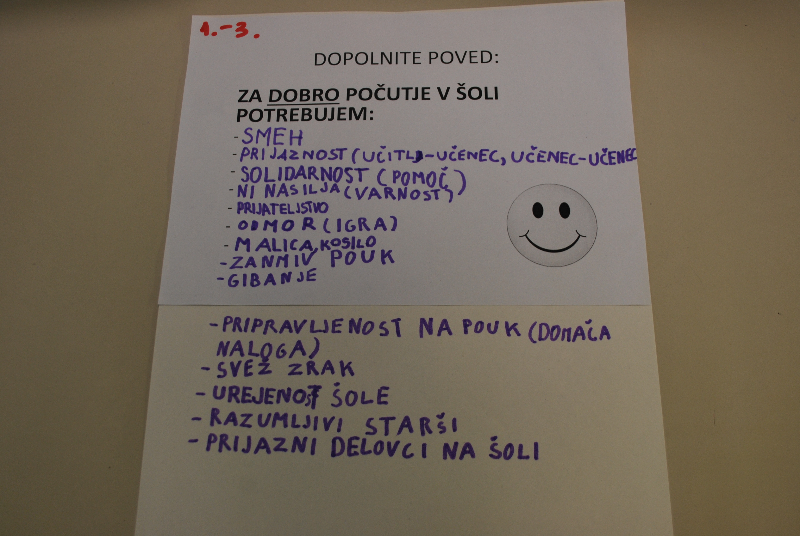 1.-3.
DOPOLNITE POVED:
ZA DOBRO POČUTJE V ŠOLI
POTREBUJEM:
- SMEH
- PRIJAZNOST (UČITLJ-UČENEC, UČENEC-UČENEC
- SOLIDARNOST (POMOČ)
- NI NASILJA (VARNOST)
- PRIJATELJSTVO
- ODMOR (IGRA)
- MALICA, KOSILO
- ZANMIV POUK
- GIBANJE
- PRIPRAVLJENOST NA POUK (DOMAČA
NALOGA)
- SVEŽ ZRAK
- UREJENOST ŠOLE
- RAZUMLJIVI STARŠI
- PRIJAZNI DELOVCI NA ŠOLI